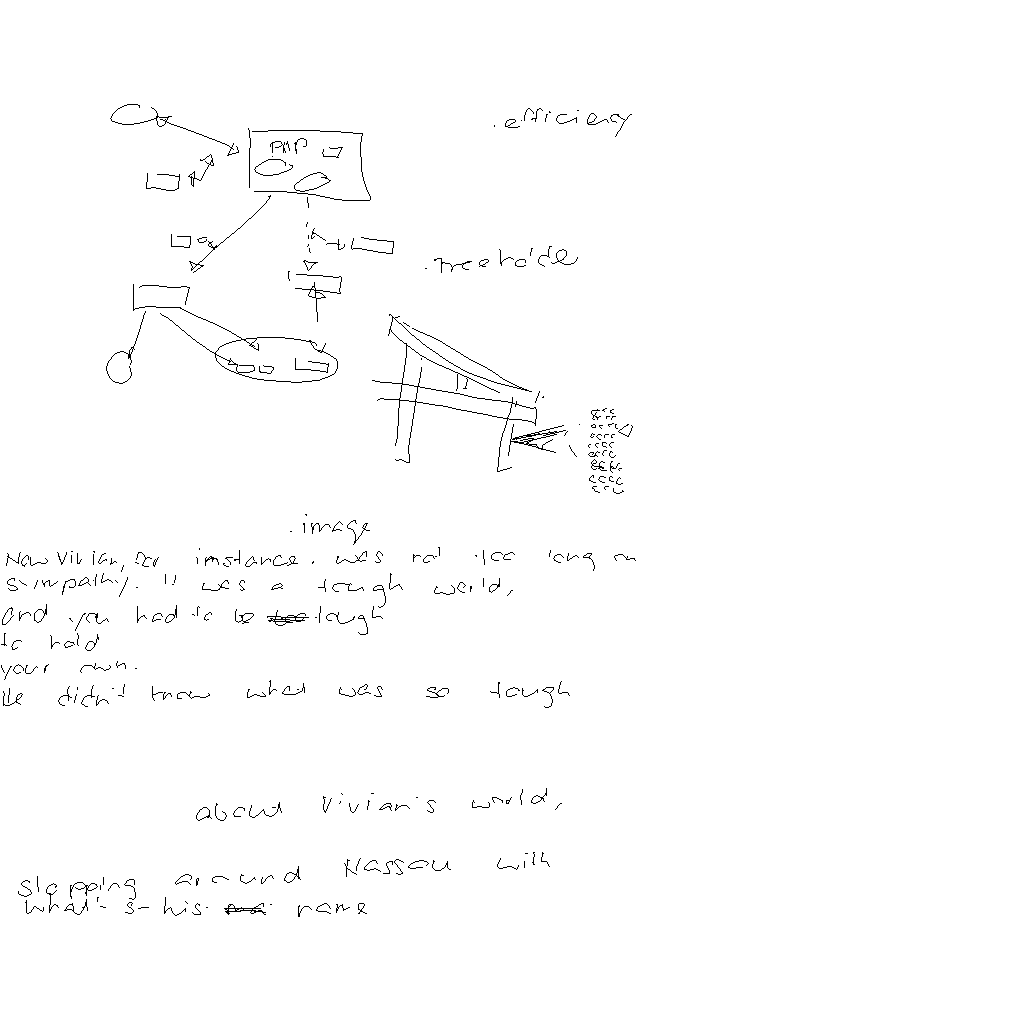 .efficiency
PMP
.treehole
.image
Now Vivian, for instance. was not too long on
sympathy. It was a tough world,
and you had to be tough
to hold
your own.
He didn't know what was so tough
about Vivian's world,
slopping around Nassau with
what's-his name